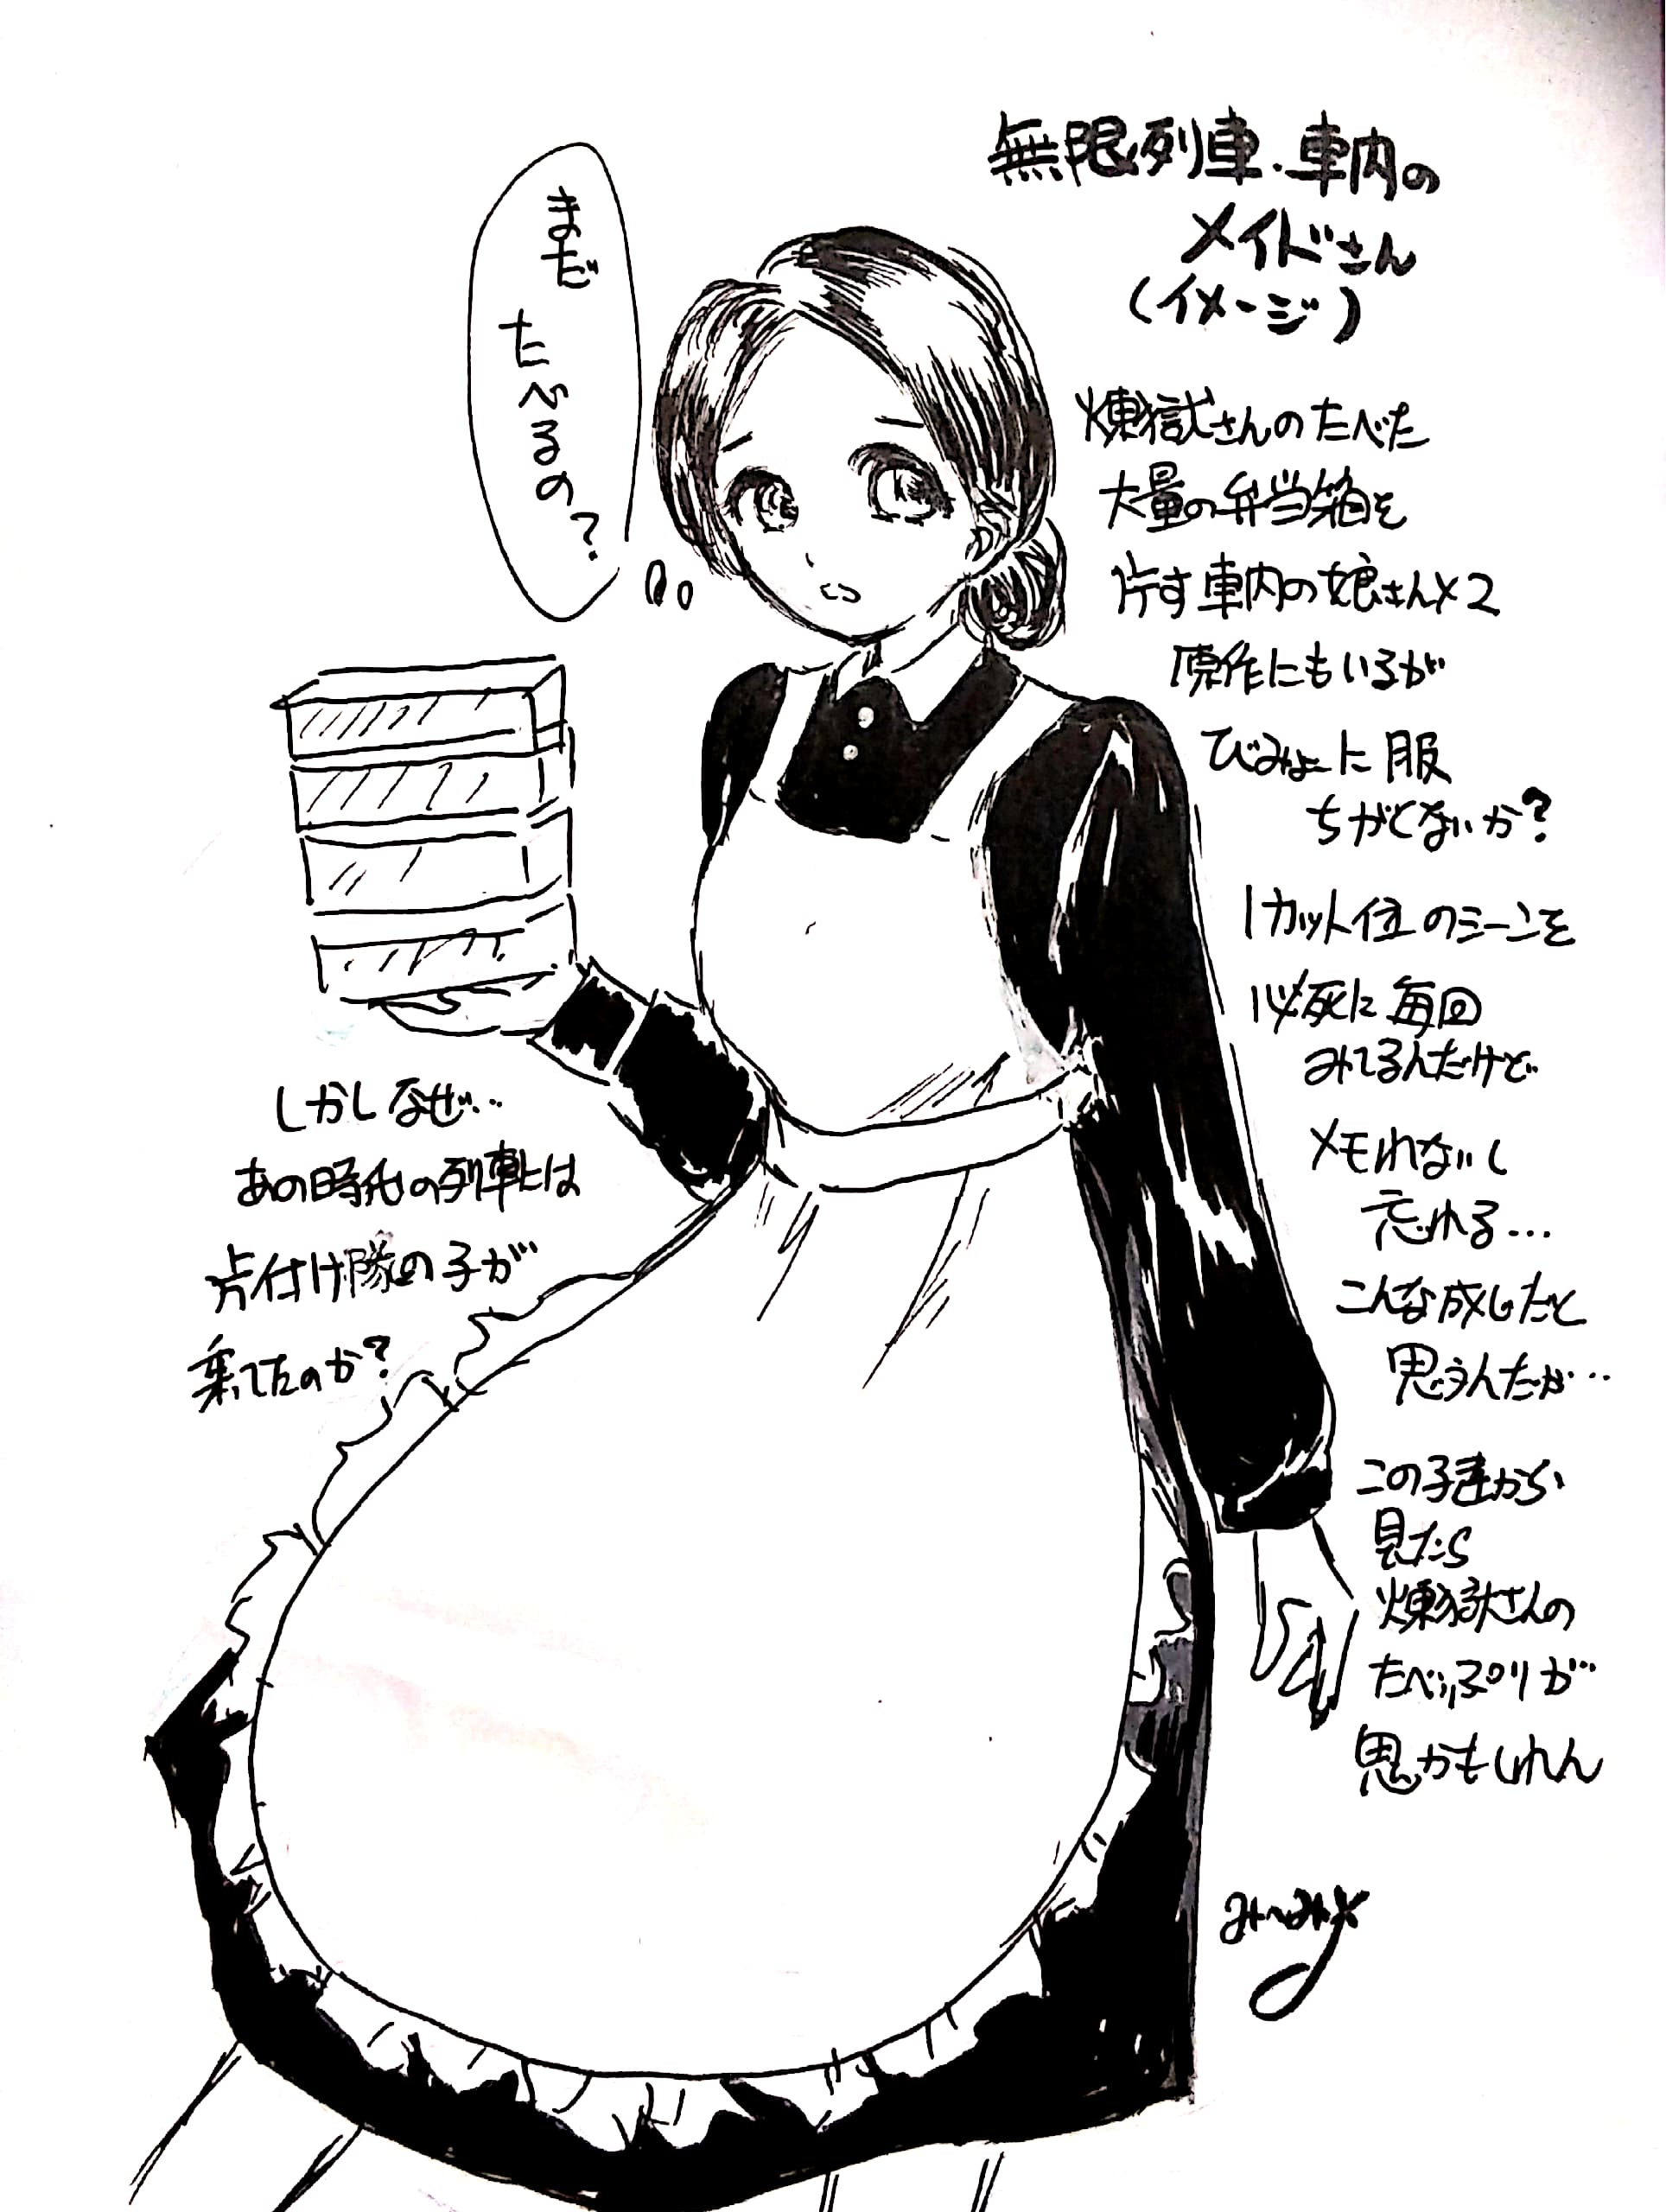 無限列車・車内の
メイドさん
(イメージ)
まだ
たべるの?
煉獄さんのたべた
大量の弁当箱を
片す車内の娘さん×2
原作にもいるが
びみょーに服
ちがくないか?
1カット位のシーンを
必死に毎回
みてるんだけど
メモれないし
忘れる…
こんな感じだと
思うんだが…
この子達から
見たら
煉獄さんの
たべっぷりが
鬼かもしれん
しかしなぜ…
あの時代の列車には
片付け隊の子が
乗ってたのか?